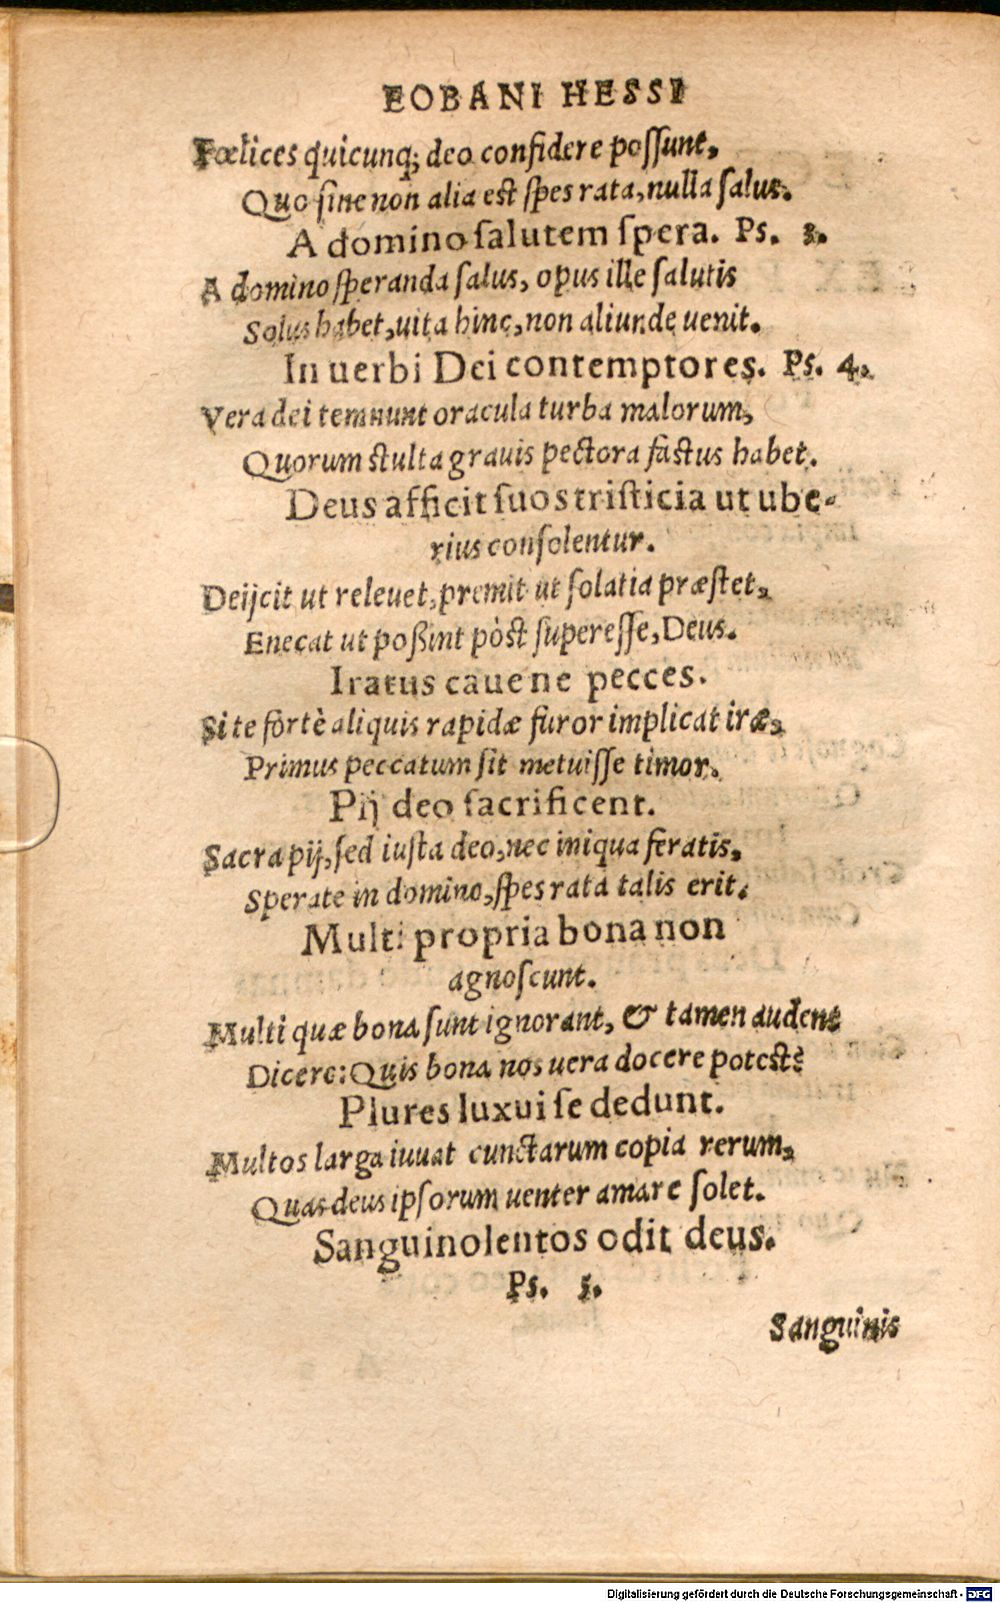 EOBANI HESSI
Fœlices quicunq; deo confidere poſſunt,
Quo ſine non alia est ſpes rata, nulla ſalus.
A domino ſalutem ſpera. Ps. 3.
A domino ſperanda ſalus, opus ille ſalutis
Solus habet, uita hinc, non aliunde uenit.
In uerbi Dei contemptores. Ps. 4.
Vera dei temnunt oracula turba malorum,
Quorum stulta grauis pectora factus habet.
Deus afficit ſuos tristicia ut ube-
rius conſolentur.
Deijcit ut releuet, premit ut ſolatia præſtet,
Enecat ut poßint pòst ſupereſſe, Deus.
Iratus caue ne pecces.
Si te fortè aliquis rapidæ furor implicat iræ,
Primus peccatum ſit metuiſſe timor.
Pij deo ſacrificent.
Sacra pij, ſed iuſta deo, nec iniqua feratis,
Sperate in domino, ſpes rata talis erit.
Multi propria bona non
agnoſcunt.
Multi quæ bona ſunt ignorant, & tamen audent
Dicere: Quis bona nos uera docere potest?
Plures luxui ſe dedunt.
Multos larga iuuat cunctarum copia rerum,
Quas deus ipſorum uenter amare ſolet.
Sanguinolentos odit deus.
Ps. 5.
Sanguinis
Digitalisierung gefördert durch die Deutsche Forschungsgemeinschaft - DFG